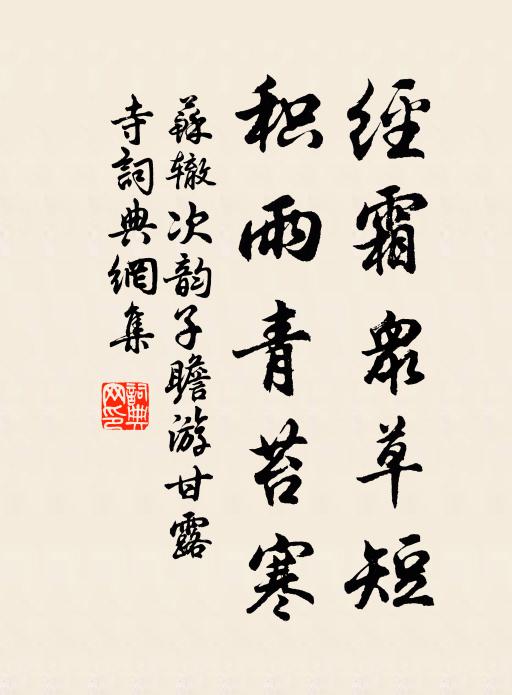 經霜衆草短
积雨青苔寒
蘇辙次韵子瞻游甘露
寺詞典網集
詞典网印